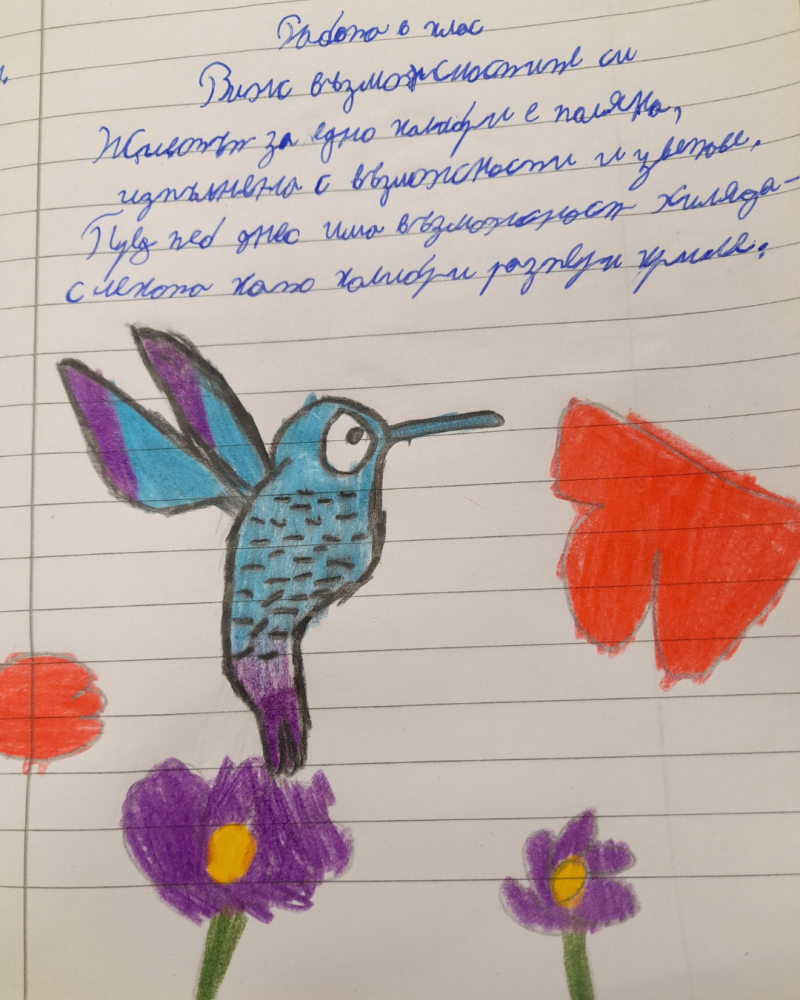 Работа в клас
Виж възможностите си
Животът за едно колибри е поляна,
изпълнена с възможности и цветове.
Пред теб днес има възможност хиляда-
с лекота като колибри разпери крила.